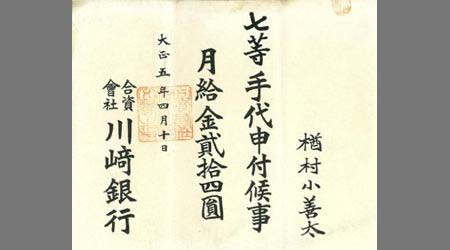 楢村小善太
七等手代申付候事
月給金貳拾四圓
大正五年四月十日
合資會社川﨑銀行